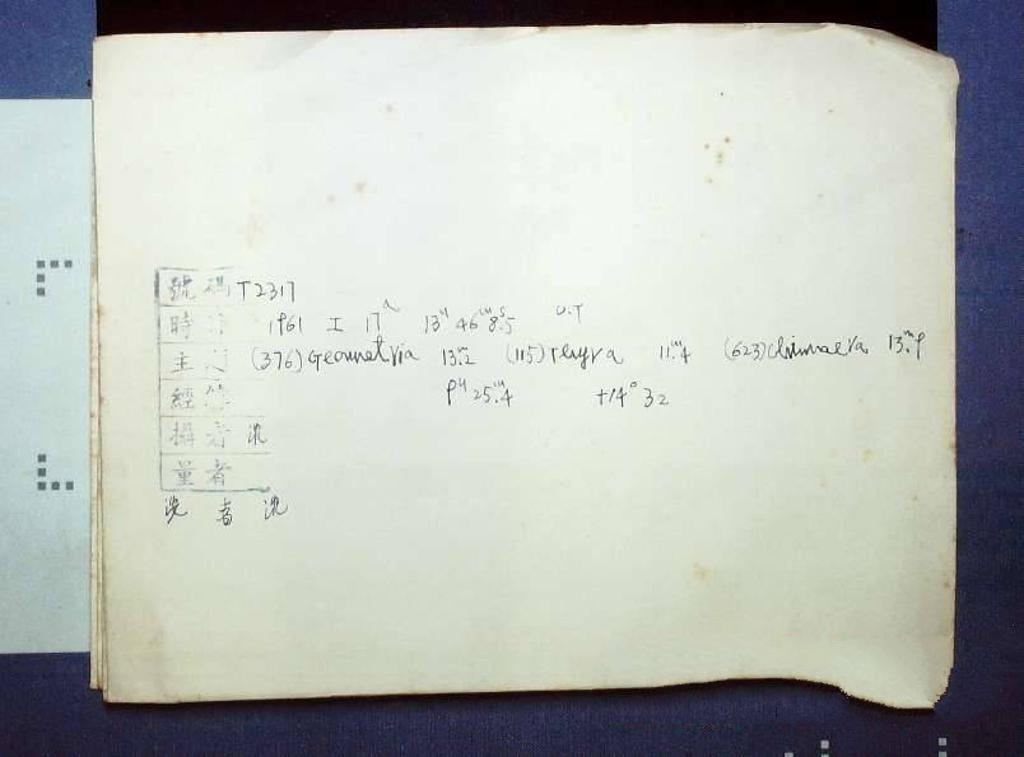 號碼 T2317
時 1961 I 17ᵈ 13ᴴ 46ᵐ 8ˢ.5 U.T
主 (376) Geometria 13ᵐ.2 (115) Thyra 11ᵐ.4 (623) Chimaera 13ᵐ.9
經緯 9ᴴ 25ᵐ.4 +14° 32
攝者 沈
量者
洗者 沈